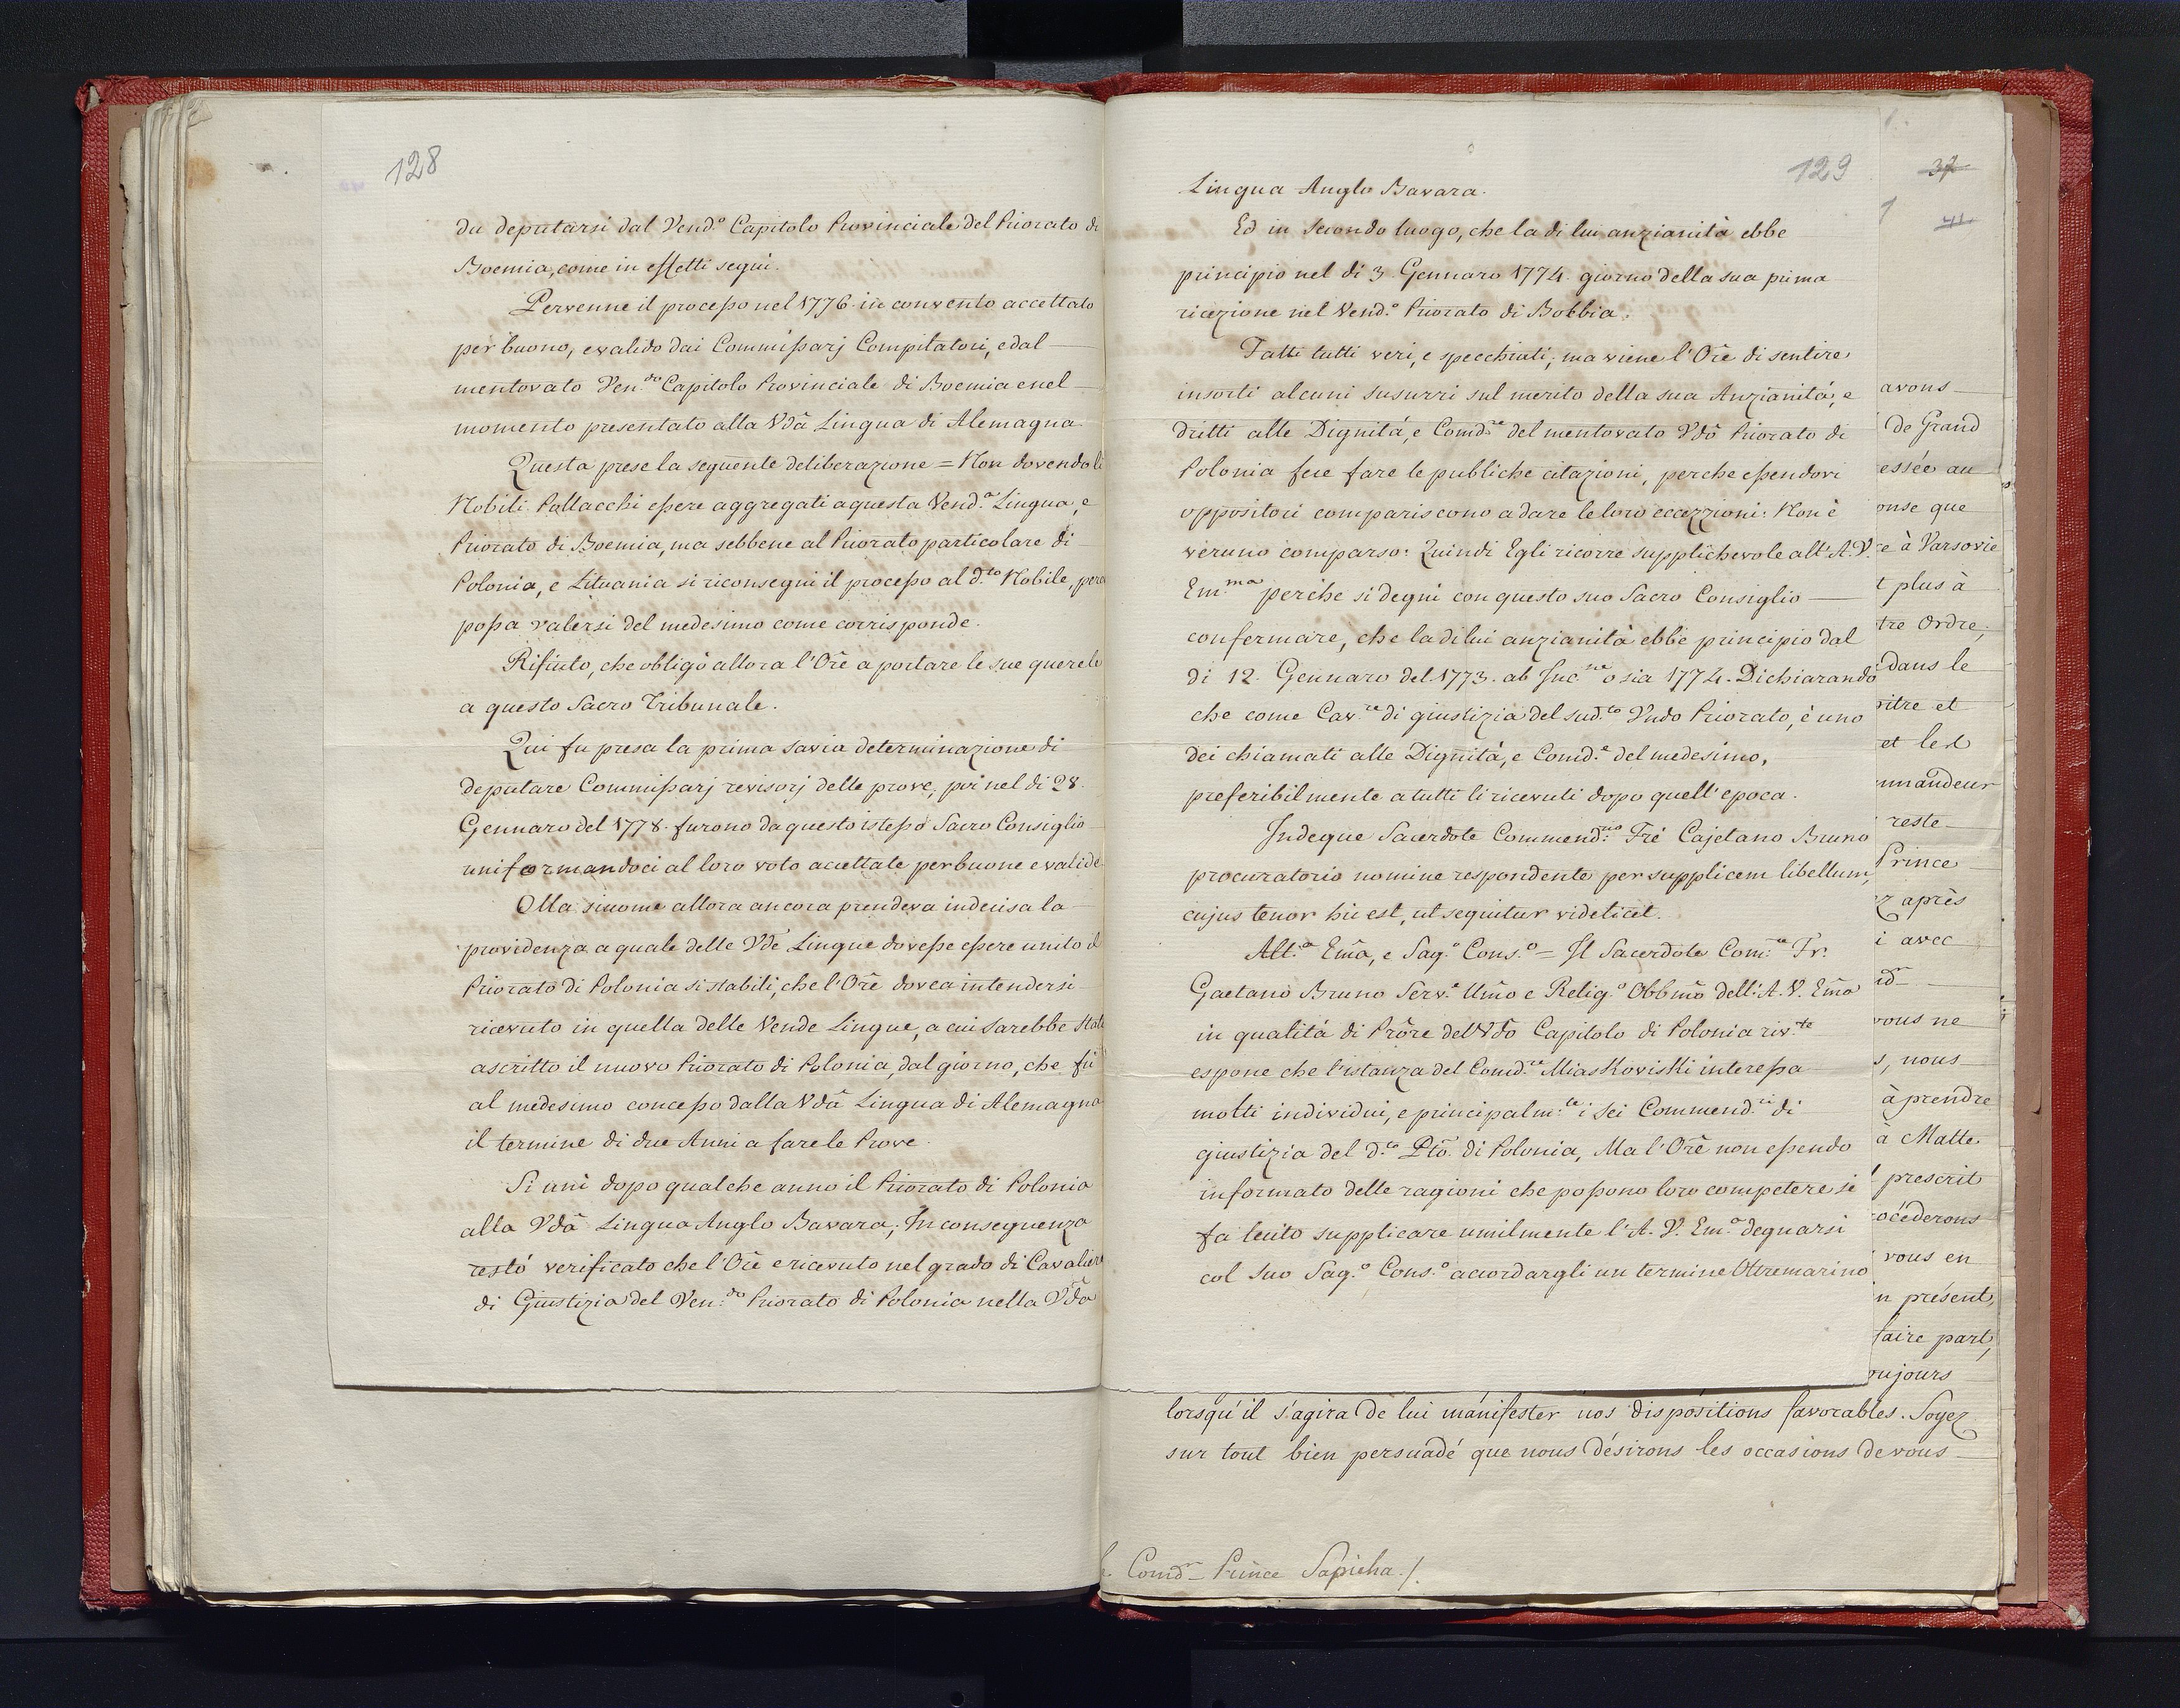 128
da deputarsi dal Vend.º Capitolo Provinciale del Priorato di
Boemia, come in effetti seguì.
Pervenne il processo nel 1776 in convento accettato
per buono, e valido dai Commissarj Compilatori, e dal
mentovato Ven.do Capitolo Provinciale di Boemia e nel
momento presentato alla Vdã Lingua di Alemagna.
Questa prese la seguente deliberazione = Non dovendo li
Nobili Pollacchi essere aggregati a questa Vend.a Lingua, e
Priorato di Boemia, ma sebbene al Priorato particolare di
Polonia, e Lituania si riconsegni il processo al d.to Nobile, perc
possa valersi del medesimo come corrisponde.
Rifiuto, che obligò allora l'Orē a portare le sue querele
a questo Sacro Tribunale.
Qui fu presa la prima savia determinazione di
deputare Commissarj revisorj delle prove, poi nel di 28.
Gennaro del 1778. furono da questo istesso Sacro Consiglio
uniformandoci al loro voto accettate per buone e valide.
Ma siccome allora ancora prendeva indecisa la
providenza a quale delle Vdē Lingue dovesse essere unito il
Priorato di Polonia si stabilì, che l'Orē dovea intendersi
ricevuto in quella delle Vende Lingue, a cui sarebbe stato
ascritto il nuovo Priorato di Polonia, dal giorno, che fù
al medesimo concesso dalla Vdã Lingua di Alemagna
il termine di due Anni a fare le Prove.
Si unì dopo qualche anno il Priorato di Polonia
alla Vdã Lingua Anglo Bavara; In conseguenza
restó verificato che l'Orē e ricevuto nel grado di Cavaliere
di Giustizia del Ven.do Priorato di Polonia nella Vdã
129
Lingua Anglo Bavara.
Ed in secondo luogo, che la di lui anzianità ebbe
principio nel di 3. Gennaro 1774. giorno della sua prima
ricezione nel Vend.º Priorato di Bobbia.
Fatti tutti veri, e specchiati; ma viene l'Orē di sentire
insorti alcuni susurri sul merito della sua Anzianitá, e
dritti alle Dignitá, e Comd.re del mentovato Vdõ Priorato di
Polonia fece fare le publiche citazioni, perche essendovi
oppositori compariscono a dare le loro eccezzioni. Non è
veruno comparso: Quindi Egli ricorre supplichevole all'A.V.
Em.ma perche si degni con questo suo Sacro Consiglio
confermare, che la di lui anzianità ebbe principio dal
di 12. Gennaro del 1773. ab Inc.ne o sia 1774. Dichiarando
che come Cav.re di giustizia del sud.to Vndo Priorato, è uno
dei chiamati alle Dignità, e Comd.e del medesimo,
preferibilmente a tutti li ricevuti dopo quell'epoca.
Indeque Sacerdote Commend.rio Frē Cajetano Bruno
procuratorio nomine respondente per supplicem libellum,
cujus tenor hic est, ut sequitur videlicet.
Alt.a Emã, e Sag.º Cons.º = Il Sacerdote Com.re Fr.
Gaetano Bruno Serv.e Umõ e Relig.º Obbmõ dell'A. V. Emã
in qualitá di Prõre del Vdõ Capitolo di Polonia riv.te
espone che l'istanza del Comd.re MiasKovisKi interessa
molti individui, e principalm.te i sei Commend.ri di
giustizia del d.to Ptõ. di Polonia, Ma l'Orē non essendo
informato delle ragioni che possono loro competere, si
fa lecito supplicare umilmente l'A. V. Em.a degnarsi
col suo Sag.º Cons.º accordargli un termine Oltremarino
37
41
avons
de Grand
essée au
onse que
e à Varsovie
t plus à
tre Ordre,
dans le
itre et
et les
mmandeur
reste
Prince
z après
i avec
vous ne
s, nous
à prendre
à Malte
prescrit
océderons
vous en
n présent,
faire part,
oujours
lorsqu'il s'agira de lui manifester nos dispositions favorables. Soyez
sur tout bien persuadé que nous désirons les occasions de vous
Comd.r Prince Sapieha./.